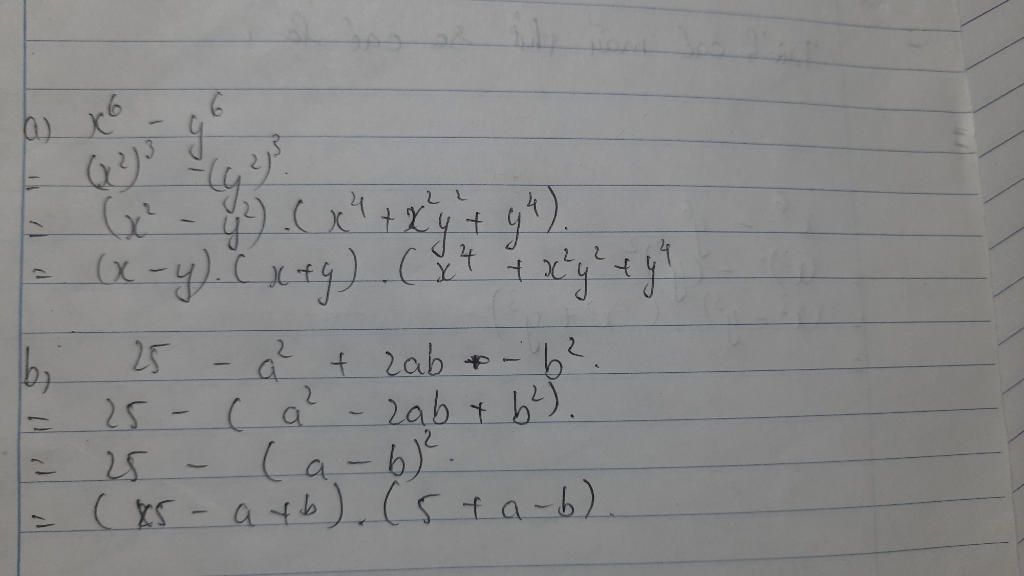 a) x⁶ - y⁶
= (x²)³ - (y²)³.
= (x² - y²).(x⁴ + x²y² + y⁴).
= (x - y).(x + y).(x⁴ + x²y² + y⁴
b) 25 - a² + 2ab - b².
= 25 - (a² - 2ab + b²).
= 25 - (a - b)².
= (5 - a + b).(5 + a - b).